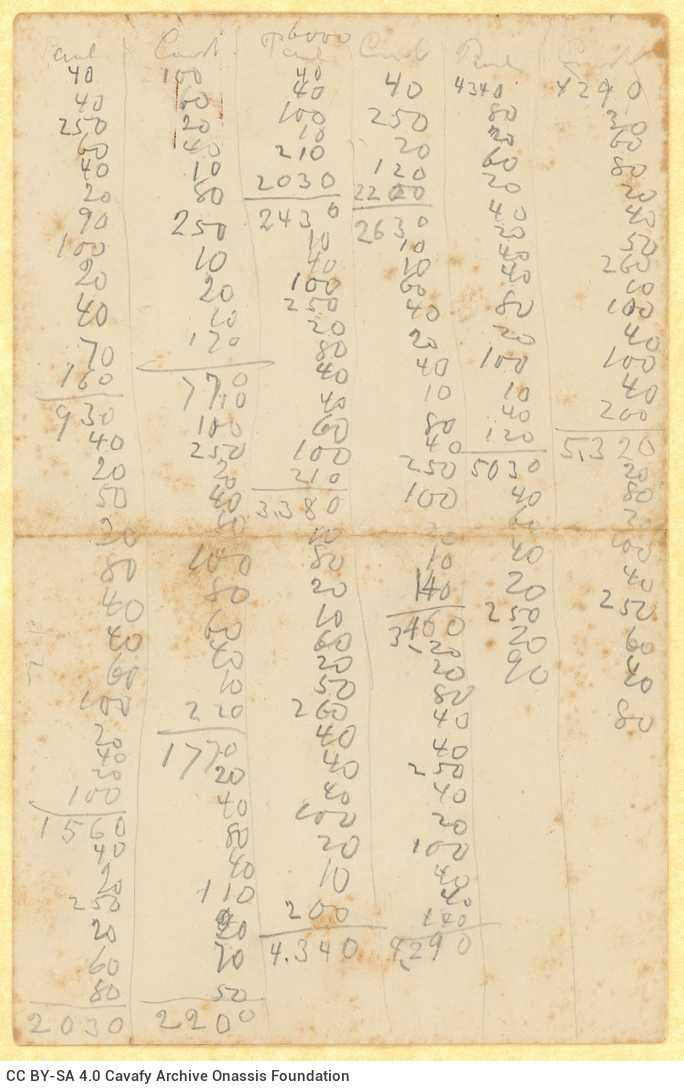 Paul
40
40
250
60
40
20
90
100
20
40
70
160
930
40
20
50
20
80
40
40
60
100
20
40
20
100
1560
40
20
250
20
60
80
2030
100
60
20
40
10
80
250
10
20
10
170
770
10
100
250
20
40
100
80
60
40
10
220
1770
20
40
80
40
110
20
70
50
2200
6000
Paul
40
40
100
10
210
2030
2430
10
40
100
250
20
80
40
40
60
100
210
3.380
10
80
20
10
60
20
50
260
40
40
40
100
20
10
200
4.340
40
250
20
120
2200
2630
10
10
60
40
20
40
10
80
40
250
100
20
10
140
3,460
20
20
80
40
40
250
40
20
100
40
40
140
4,290
Paul
4340
80
20
60
20
40
20
40
40
80
20
100
10
40
120
5030
40
60
40
20
250
20
90
4290
30
60
80
20
40
50
260
10
100
40
100
40
200
5,320
20
80
20
100
40
250
60
40
80
CC BY-SA 4.0 Cavafy Archive Onassis Foundation